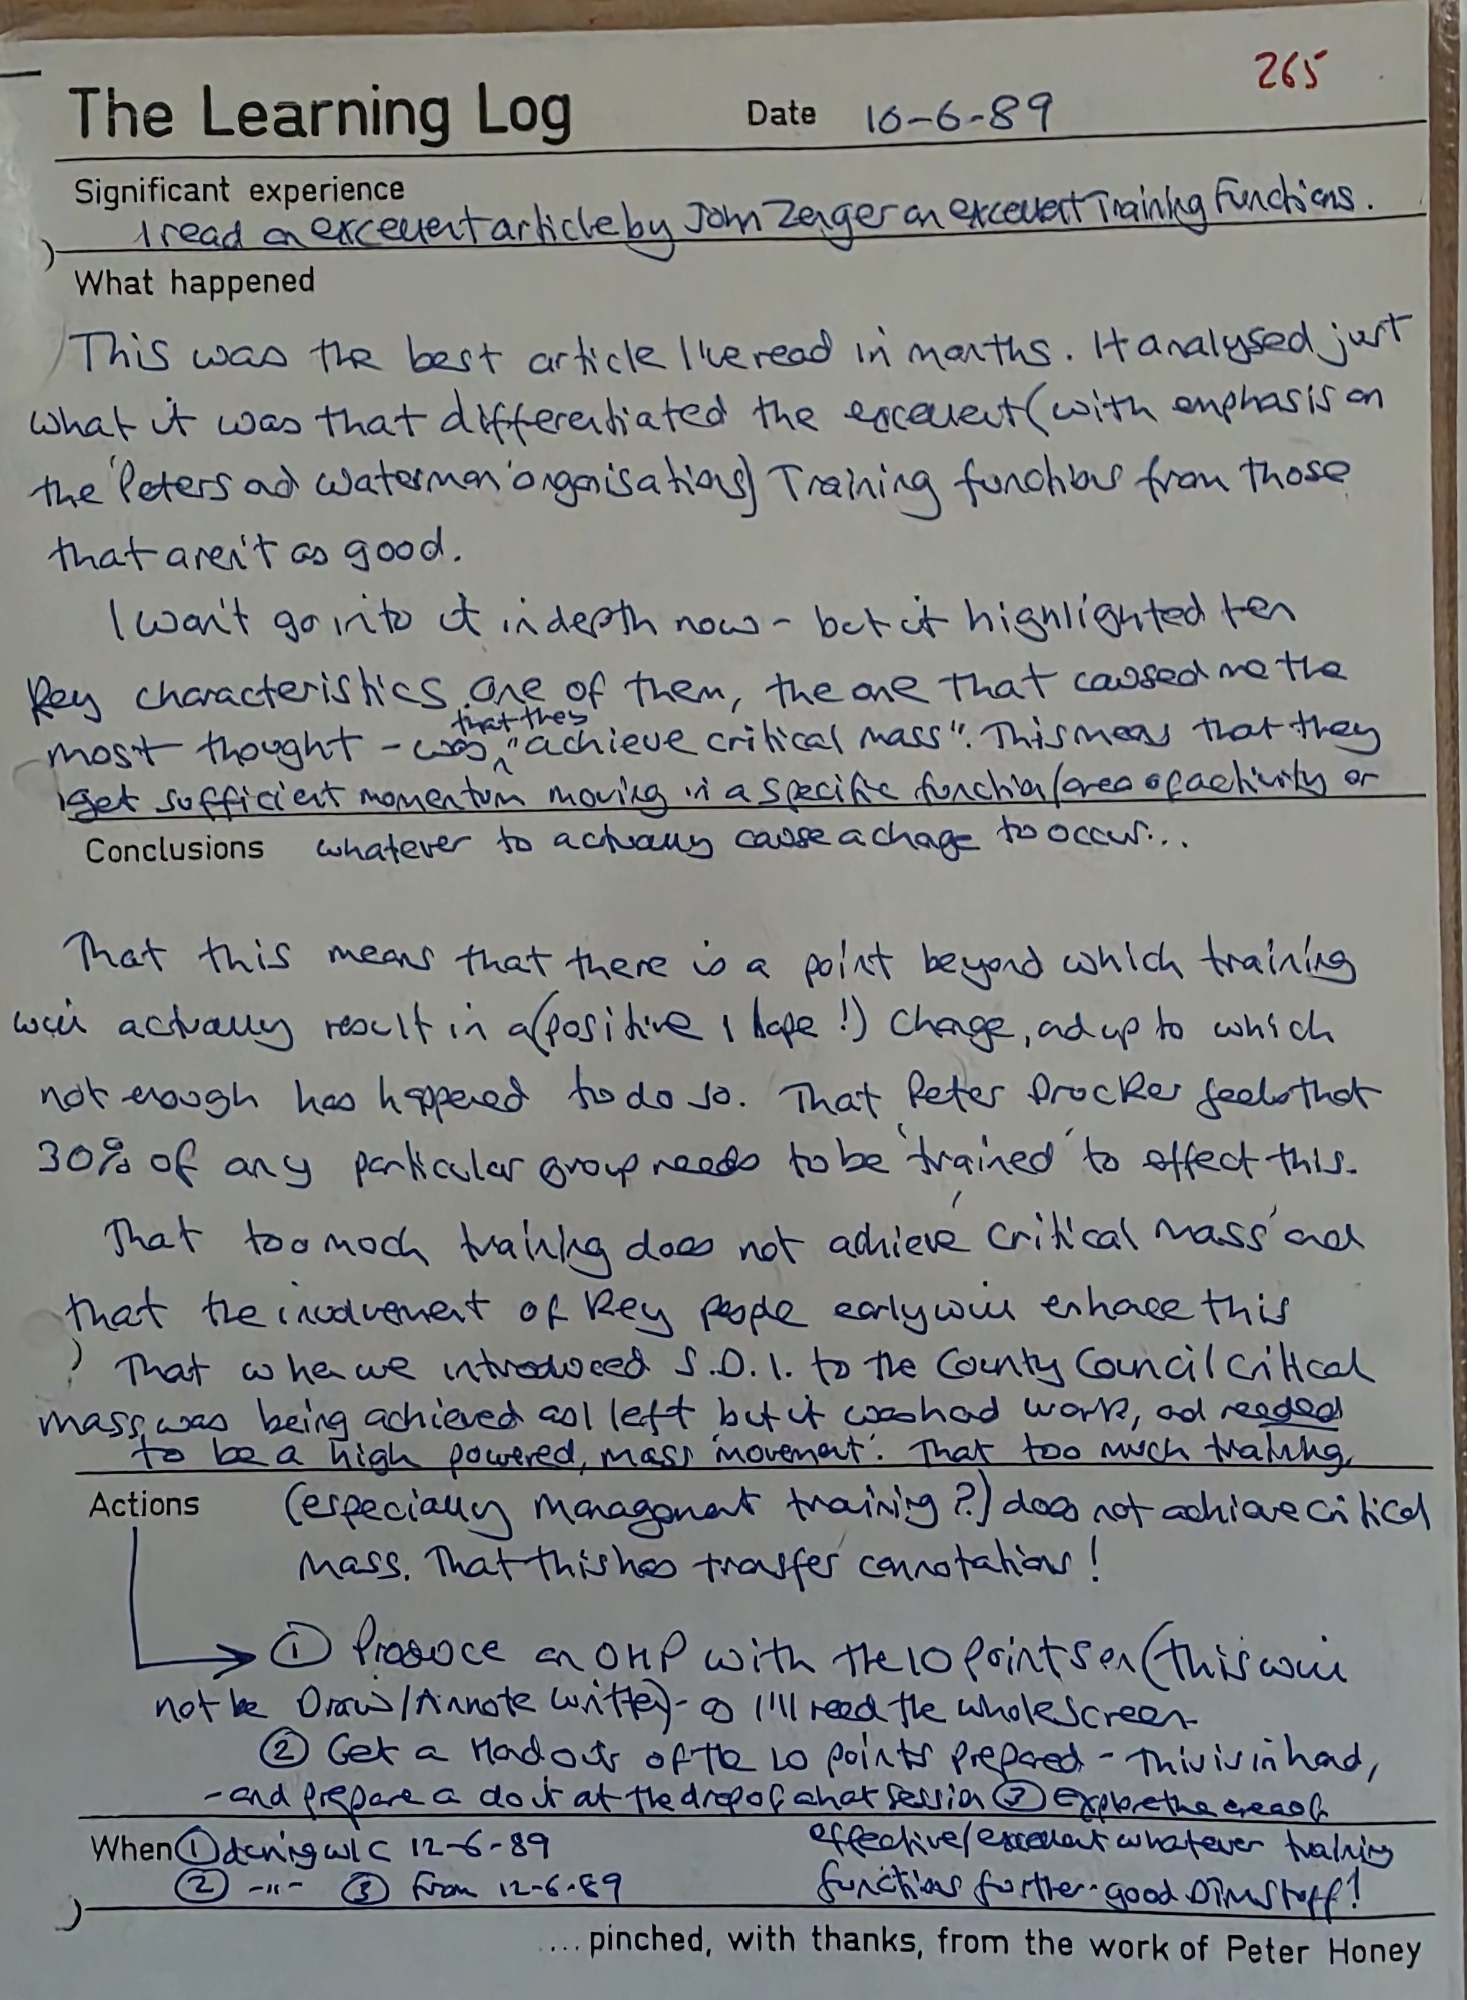 265
The Learning Log Date 10-6-89
Significant experience
I read an excellent article by John Zenger on excellent Training Functions.
What happened
This was the best article I've read in months. It analysed just
what it was that differentiated the excellent (with emphasis on
the 'Peters and Waterman' organisations) Training functions from those
that aren't as good.
I won't go into it in depth now - but it highlighted ten
key characteristics. One of them, the one that caused me the
most thought - was that they "achieve critical mass". This means that they
get sufficient momentum moving in a specific function/area of activity or
Conclusions whatever to actually cause a change to occur...
That this means that there is a point beyond which training
will actually result in a (positive I hope!) change, and up to which
not enough has happened to do so. That Peter Drucker feels that
30% of any particular group needs to be 'trained' to effect this.
That too much training does not achieve 'critical mass' and
that the involvement of key people early will enhance this
That when we introduced S.D.I. to the County Council critical
mass was being achieved as I left but it was hard work, and needed
to be a high powered, mass 'movement'. That too much training,
Actions (especially management training?) does not achieve critical
mass. That this has transfer connotations!
① Produce an OHP with the 10 points on (this will
not be Draw/Annote written) - so I'll need the whole screen
② Get a Handouts of the 10 points prepared - This is in hand,
- and prepare a do it at the drop of a hat session ③ Explore the area of
effective/excellent whatever training
functions further - good Dim stuff!
When ① during w/c 12-6-89
② -"- ③ from 12-6-89
...pinched, with thanks, from the work of Peter Honey